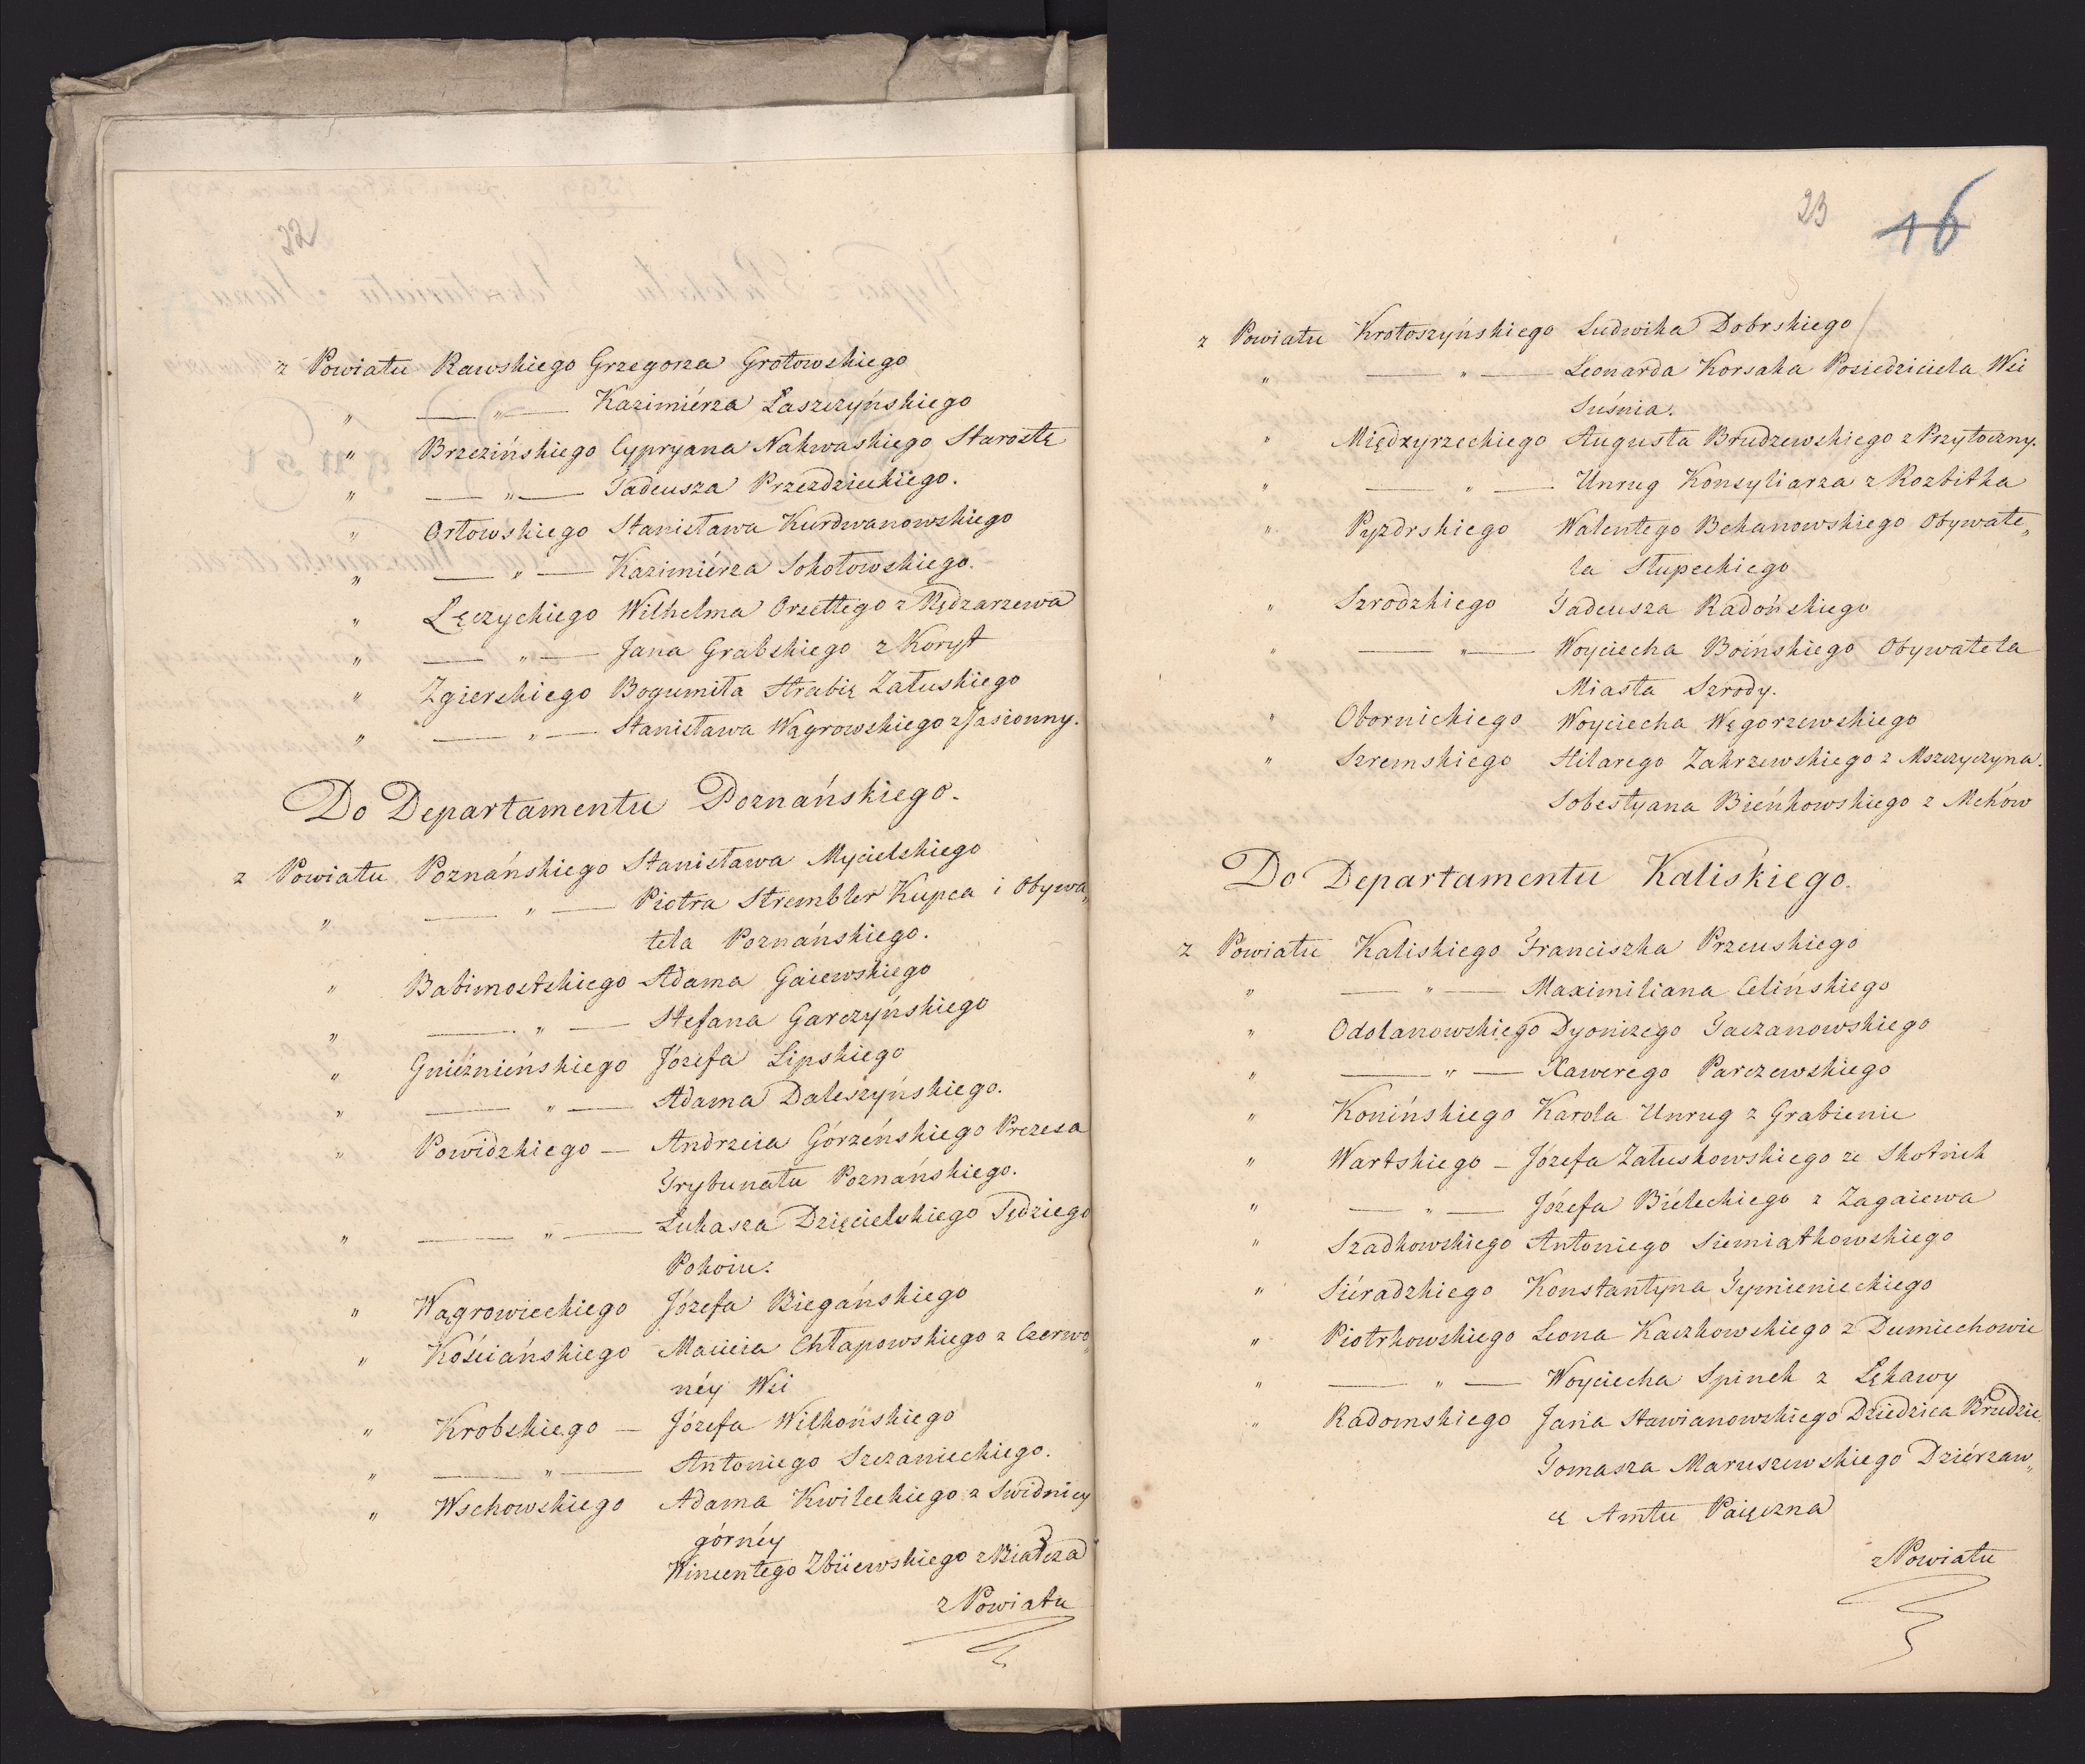 z Powiatu Rawskiego Grzegorza Grotowskiego
" — " — Kazimiérza Łaszczyńskiego
" Brzezińskiego Cypryana Nakwaskiego Starostę
" — " — Tadeusza Przezdzieckiego.
" Orłowskiego Stanisława Kurdwanowskiego
" — " — Kazimiérza Sokołowskiego.
" Łęczyckiego Wilhelma Orsettego z Rędzarzewa
" — " — Jana Grabskiego z Koryt
" Zgierskiego Bogumiła Hrabię Załuskiego
" — " — Stanisława Wągrowskiego z Jasionny.
Do Departamentu Poznańskiego.
z Powiatu Poznańskiego Stanisława Mycielskiego
" — " — Piotra Strembler Kupca i Obywa„
tela Poznańskiego.
" Babimostskiego Adama Gaiewskiego
" — " — Stefana Garczyńskiego
" Gnieźnieńskiego Józefa Lipskiego
" — " — Adama Daleszyńskiego.
" Powidzkiego — Andrzeia Górzeńskiego Prezesa
Trybunału Poznańskiego.
" — " — Łukasza Dzięcielskiego Sędziego
Pokoiu.
" Wągrowieckiego Józefa Biegańskiego
" Kościańskiego Macieia Chłapowskiego z Czerwo„
néy Wsi
" Krobskiego — Józefa Wilkońskiego
" — " — Antoniego Szczanieckiego.
" Wschowskiego Adama Kwileckiego z Swidnicy
górnéy
Wincentego Zbiiewskiego z Białcza
z Powiatu
23 16
z Powiatu Krotoszyńskiego Ludwika Dobrskiego
" — " — Leonarda Korsaka Posiedziciela Wsi
Suśnia.
" Międzyrzeckiego Augusta Brudzewskiego z Przytoczny.
" — " — Unrug Konsyliarza z Rozbitka
" Pyzdrskiego Walentego Bekanowskiego Obywate„
la Słupeckiego
" Szrodzkiego Tadeusza Radońskiego
" — " — Woyciecha Boińskiego Obywatela
Miasta Szrody.
" Obornickiego Woyciecha Węgorzewskiego
" Szremskiego Hilarego Zakrzewskiego z Mszczyczyna.
Sobestyana Bieńkowskiego z Mchów
Do Departamentu Kaliskiego.
z Powiatu Kaliskiego Franciszka Przeuskiego
" — " — Maximiliana Celińskiego
" Odolanowskiego Dyonizego Taczanowskiego
" — " — Xawerego Parczewskiego
" Konińskiego Karola Unrug z Grabienic
" Wartskiego — Józefa Załuskowskiego ze Skotnik
" — " — Józefa Biéleckiego z Zagaiewa
" Szadkowskiego Antoniego Siemiątkowskiego
" Siéradzkiego Konstantyna Tymienieckiego
" Piotrkowskiego Leona Kaczkowskiego z Dumiechowic
" — " — Woyciecha Spinek z Łękawy
" Radomskiego Jana Stawianowskiego Dziedzica Brudzic
Tomasza Maruszewskiego Dziérzaw„
cę Amtu Paięczna
z Powiatu